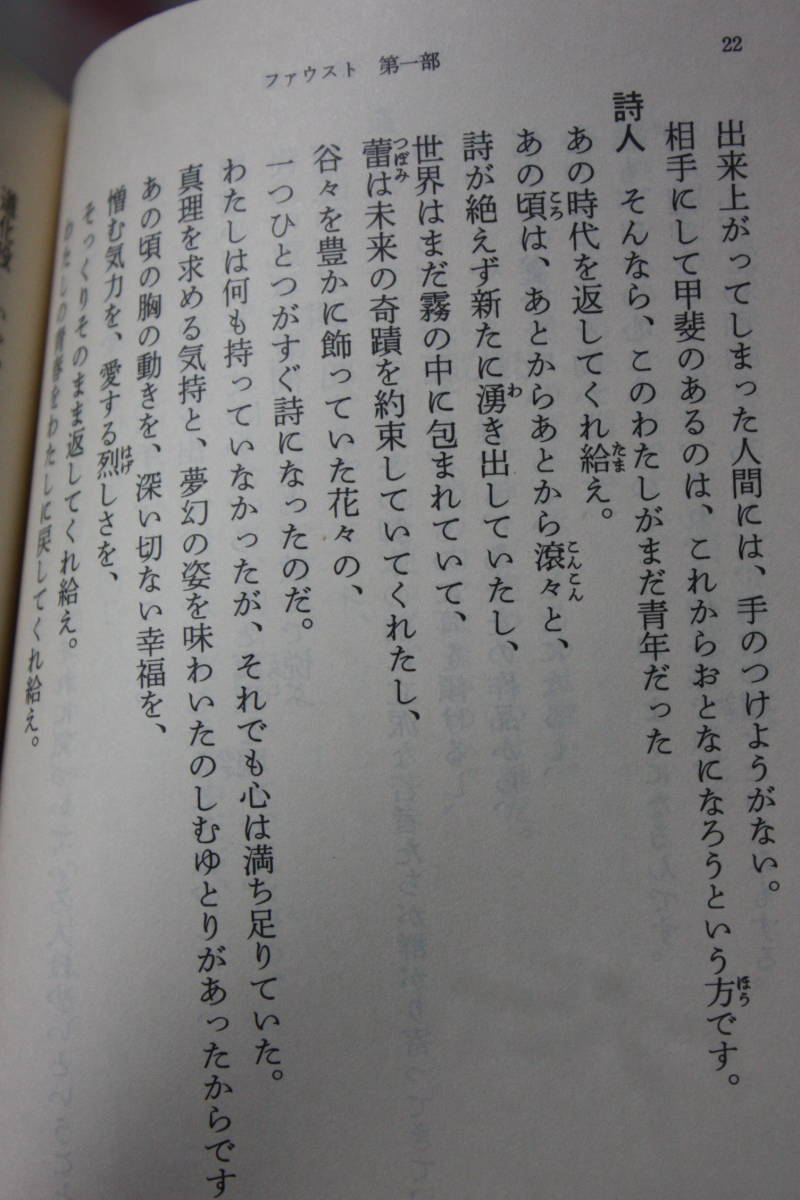 22
ファウスト 第一部
出来上がってしまった人間には、手のつけようがない。
相手にして甲斐のあるのは、これからおとなになろうという方です。
詩人 そんなら、このわたしがまだ青年だった
あの時代を返してくれ給え。
あの頃は、あとからあとから滾々と、
詩が絶えず新たに湧き出していたし、
世界はまだ霧の中に包まれていて、
蕾は未来の奇蹟を約束していてくれたし、
谷々を豊かに飾っていた花々の、
一つひとつがすぐ詩になったのだ。
わたしは何も持っていなかったが、それでも心は満ち足りていた。
真理を求める気持と、夢幻の姿を味わいたのしむゆとりがあったからです
あの頃の胸の動きを、深い切ない幸福を、
憎む気力を、愛する烈しさを、
そっくりそのまま返してくれ給え。
わたしの青春をわたしに戻してくれ給え。